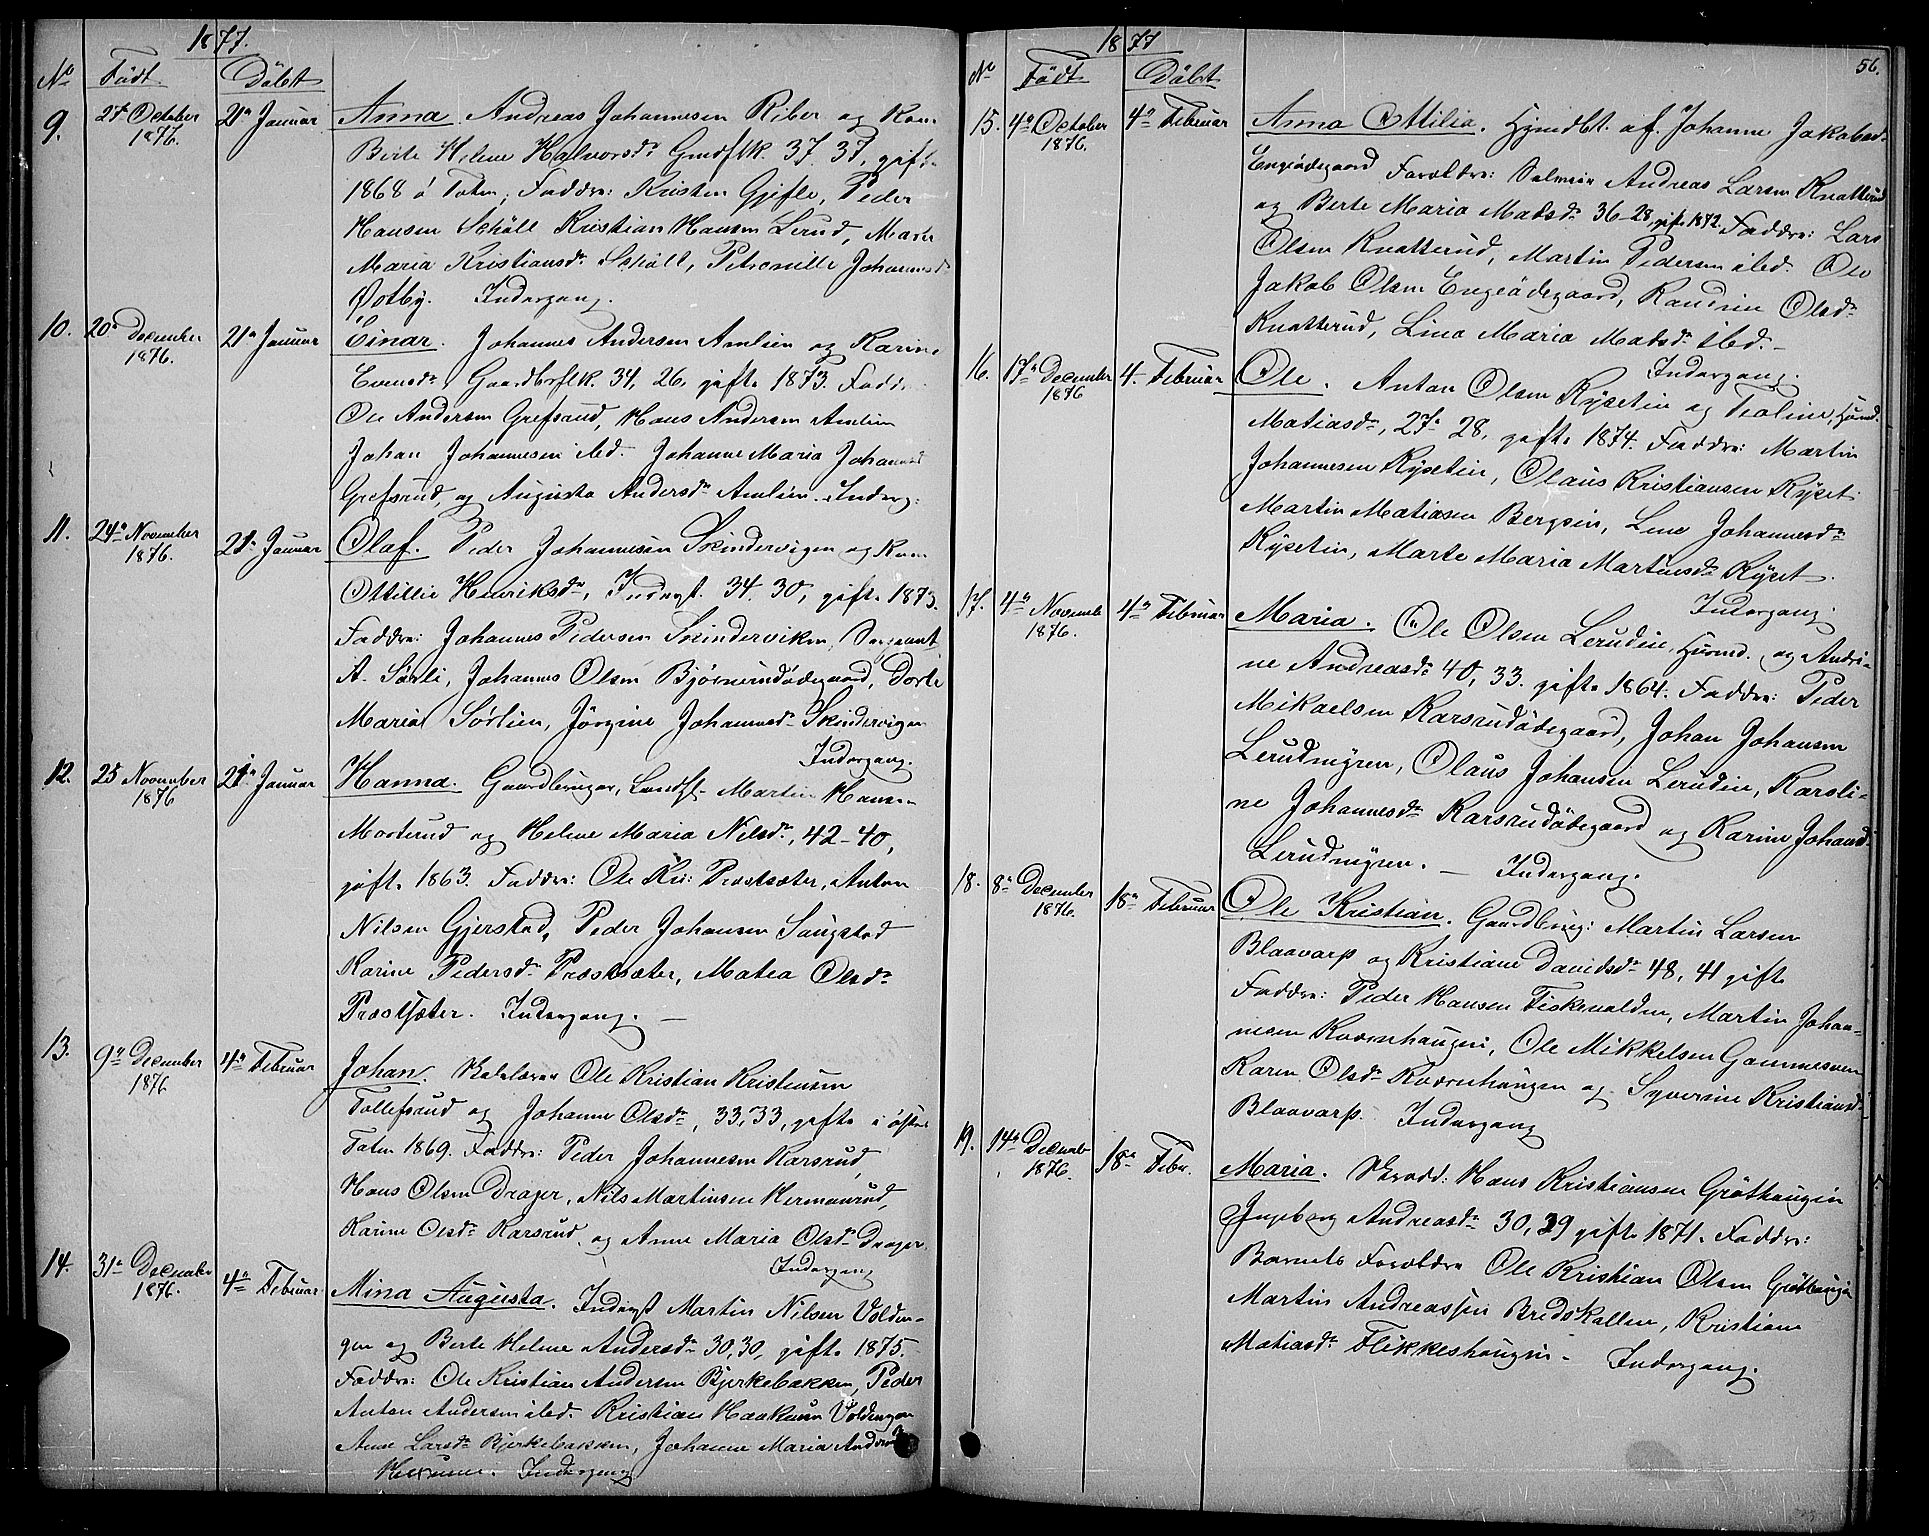 1877.
No Födt Döbt
9. 27de October 1876. 21de Januar Anna. Andreas Johannesen Riber og Kone
Berte Helene Halvorsdr 37. 37, gift
1868 i Toten; Faddre: Kristen Gjefle, Peder
Hansen Schöll Kristian Hansen Lerud, Maren
Maria Kristiansdr Schöll, Petronille Johannesd
Østby. Indergang.
10. 20de December 1876. 21de Januar Einar. Johannes Andersen Amlien og Karine
Evensdr, 34, 26, gifte 1873. Faddre
Ole Andersen Grefsrud, Hans Andersen Amlien
Johan Johannesen ibd. Johanne Maria Johannesd
Grefsrud, og Augusta Andersdr Amlien. Inderg:
11. 24de November 1876. 21de Januar Olaf. Peder Johannesen Skindervigen og Kone
Ottillie Henriksdr, Inderst. 34. 30, gifte 1873.
Faddre: Johannes Pedersen Skinderviken, Sergeant
A. Sörli, Johannes Olsen Bjørnerudödegaard, Dorte
Maria Sørlien, Jörgine Johannesd Skindervigen
Indergang.
12. 25 November 1876 21de Januar Hanna. Gaardbruger, Martin Hansen
Morterud og Helene Maria Nilsdr, 42-40,
gifte 1863. Faddre: Ole Kr: Præstsæter, Anton
Nilsen Gjerstad, Peder Johansen Saugstad
Karine Pedersdr Præstsæter, Matea Olsdr
Præstsæter. Indergang. —
13. 9de December 1876 4de Februar Johan. Skolelærer Ole Kristian Kristensen
Tollefsrud og Johanne Olsdr, 33, 33, gifte i östre
Toten 1869. Faddre: Peder Johannesen Karsrud,
Hans Olsen Drager, Nils Martinsen Hermanrud,
Karine Olsdr Karsrud, og Anne Maria Olsdr Drager.
Indergang
14. 31de December 1876. 4de Februar Mina Augusta. Inderst Martin Nilsen Volden-
gen og Berte Helene Andersdr 30, 30, gifte 1875.
Faddre: Ole Kristian Andersen Bjerkebakken, Peder
Anton Andersen ibd. Kristian Haakensen Voldengen
Anne Larsdr Bjerkebakken, Johanne Maria Andersd
Indergang
1877
56.
No Födt Döbt
15. 4de October 1876. 4de Februar Anna Ottilia. Hjemdbt. af Johanne Jakobsd.
Engeödegaard Forældre: Andreas Larsen Knatterud
og Berte Maria Madsdr 36-28, gifte 1872. Faddre: Lars
Olsen Knatterud, Martin Pedersen ibd. Ole
Jakob Olsen Engeödegaard, Randine Olsdr
Knatterud, Lina Maria Madsdr ibd. —
Indergang.
16. 17de December 1876 4. Februar Ole. Anton Olsen Rÿsetin og Teoline, Husmd.
Matiasdr, 27. 28, gifte 1874. Faddre: Martin
Johannesen Rÿsetin, Olaus Kristiansen Rÿset
Martin Matiasen Bergsin, Lene Johannesdr
Rÿsetin, Marte Maria Martinsdr Rÿset.
Indergang.
17. 4de Novemb 1876. 4de Februar Maria. Ole Olsen Lerudeie, Husmd. og Andri-
ne Andreasdr 40, 33. gifte 1864. Faddre: Peder
Mikaelsen Karsrudödegaard, Johan Johansen
Lerudmyren, Olaus Johansen Lerudeie, Karoli-
ne Johannesdr Karsrudödegaard og Karine Johansd
Lerudmyren. — Indergang.
18. 8de December 1876. 18de Februar Ole Kristian. Gaardbrug: Martin Larsen
Blaavarp og Kristiane Davidsdr 48, 41 gifte
Faddre: Peder Hansen Fiskevolden, Martin Johan-
nesen Kvernhaugen, Ole Mikkelsen Gammesveen
Karen Olsdr Kvernhaugen og Syverine Kristiansd
Blaavarp. Indergang
19. 14de Decemb 1876. 18de Febr. Maria. Skredd: Hans Kristiansen Gröthaugen
Ingeborg Andreasdr 30, 29 gifte 1871. Faddre:
Barnets Forældre Ole Kristian Olsen Gröthaugen
Martin Andreassen Bredskallen, Kristiane
Matiasdr Flikkeshaugen — Indergang.